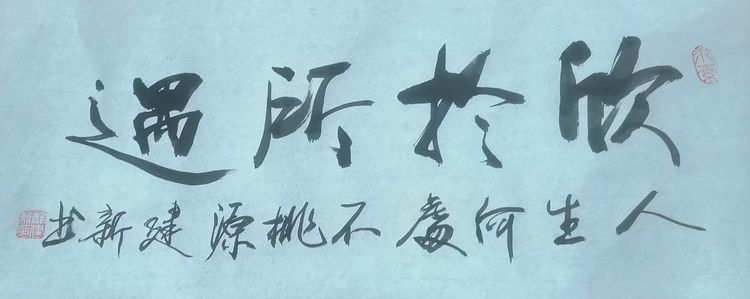 欣於所遇
人生何處不桃源建新书